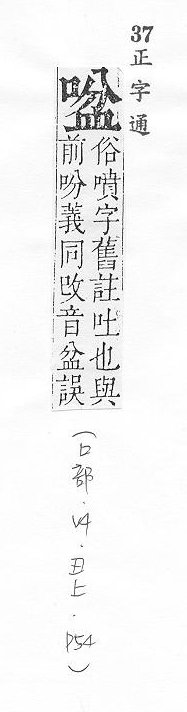 37 正字通
㖹
俗噴字舊註吐也與
前吩義同改音盆誤
(口部.V4.丑上.P54)